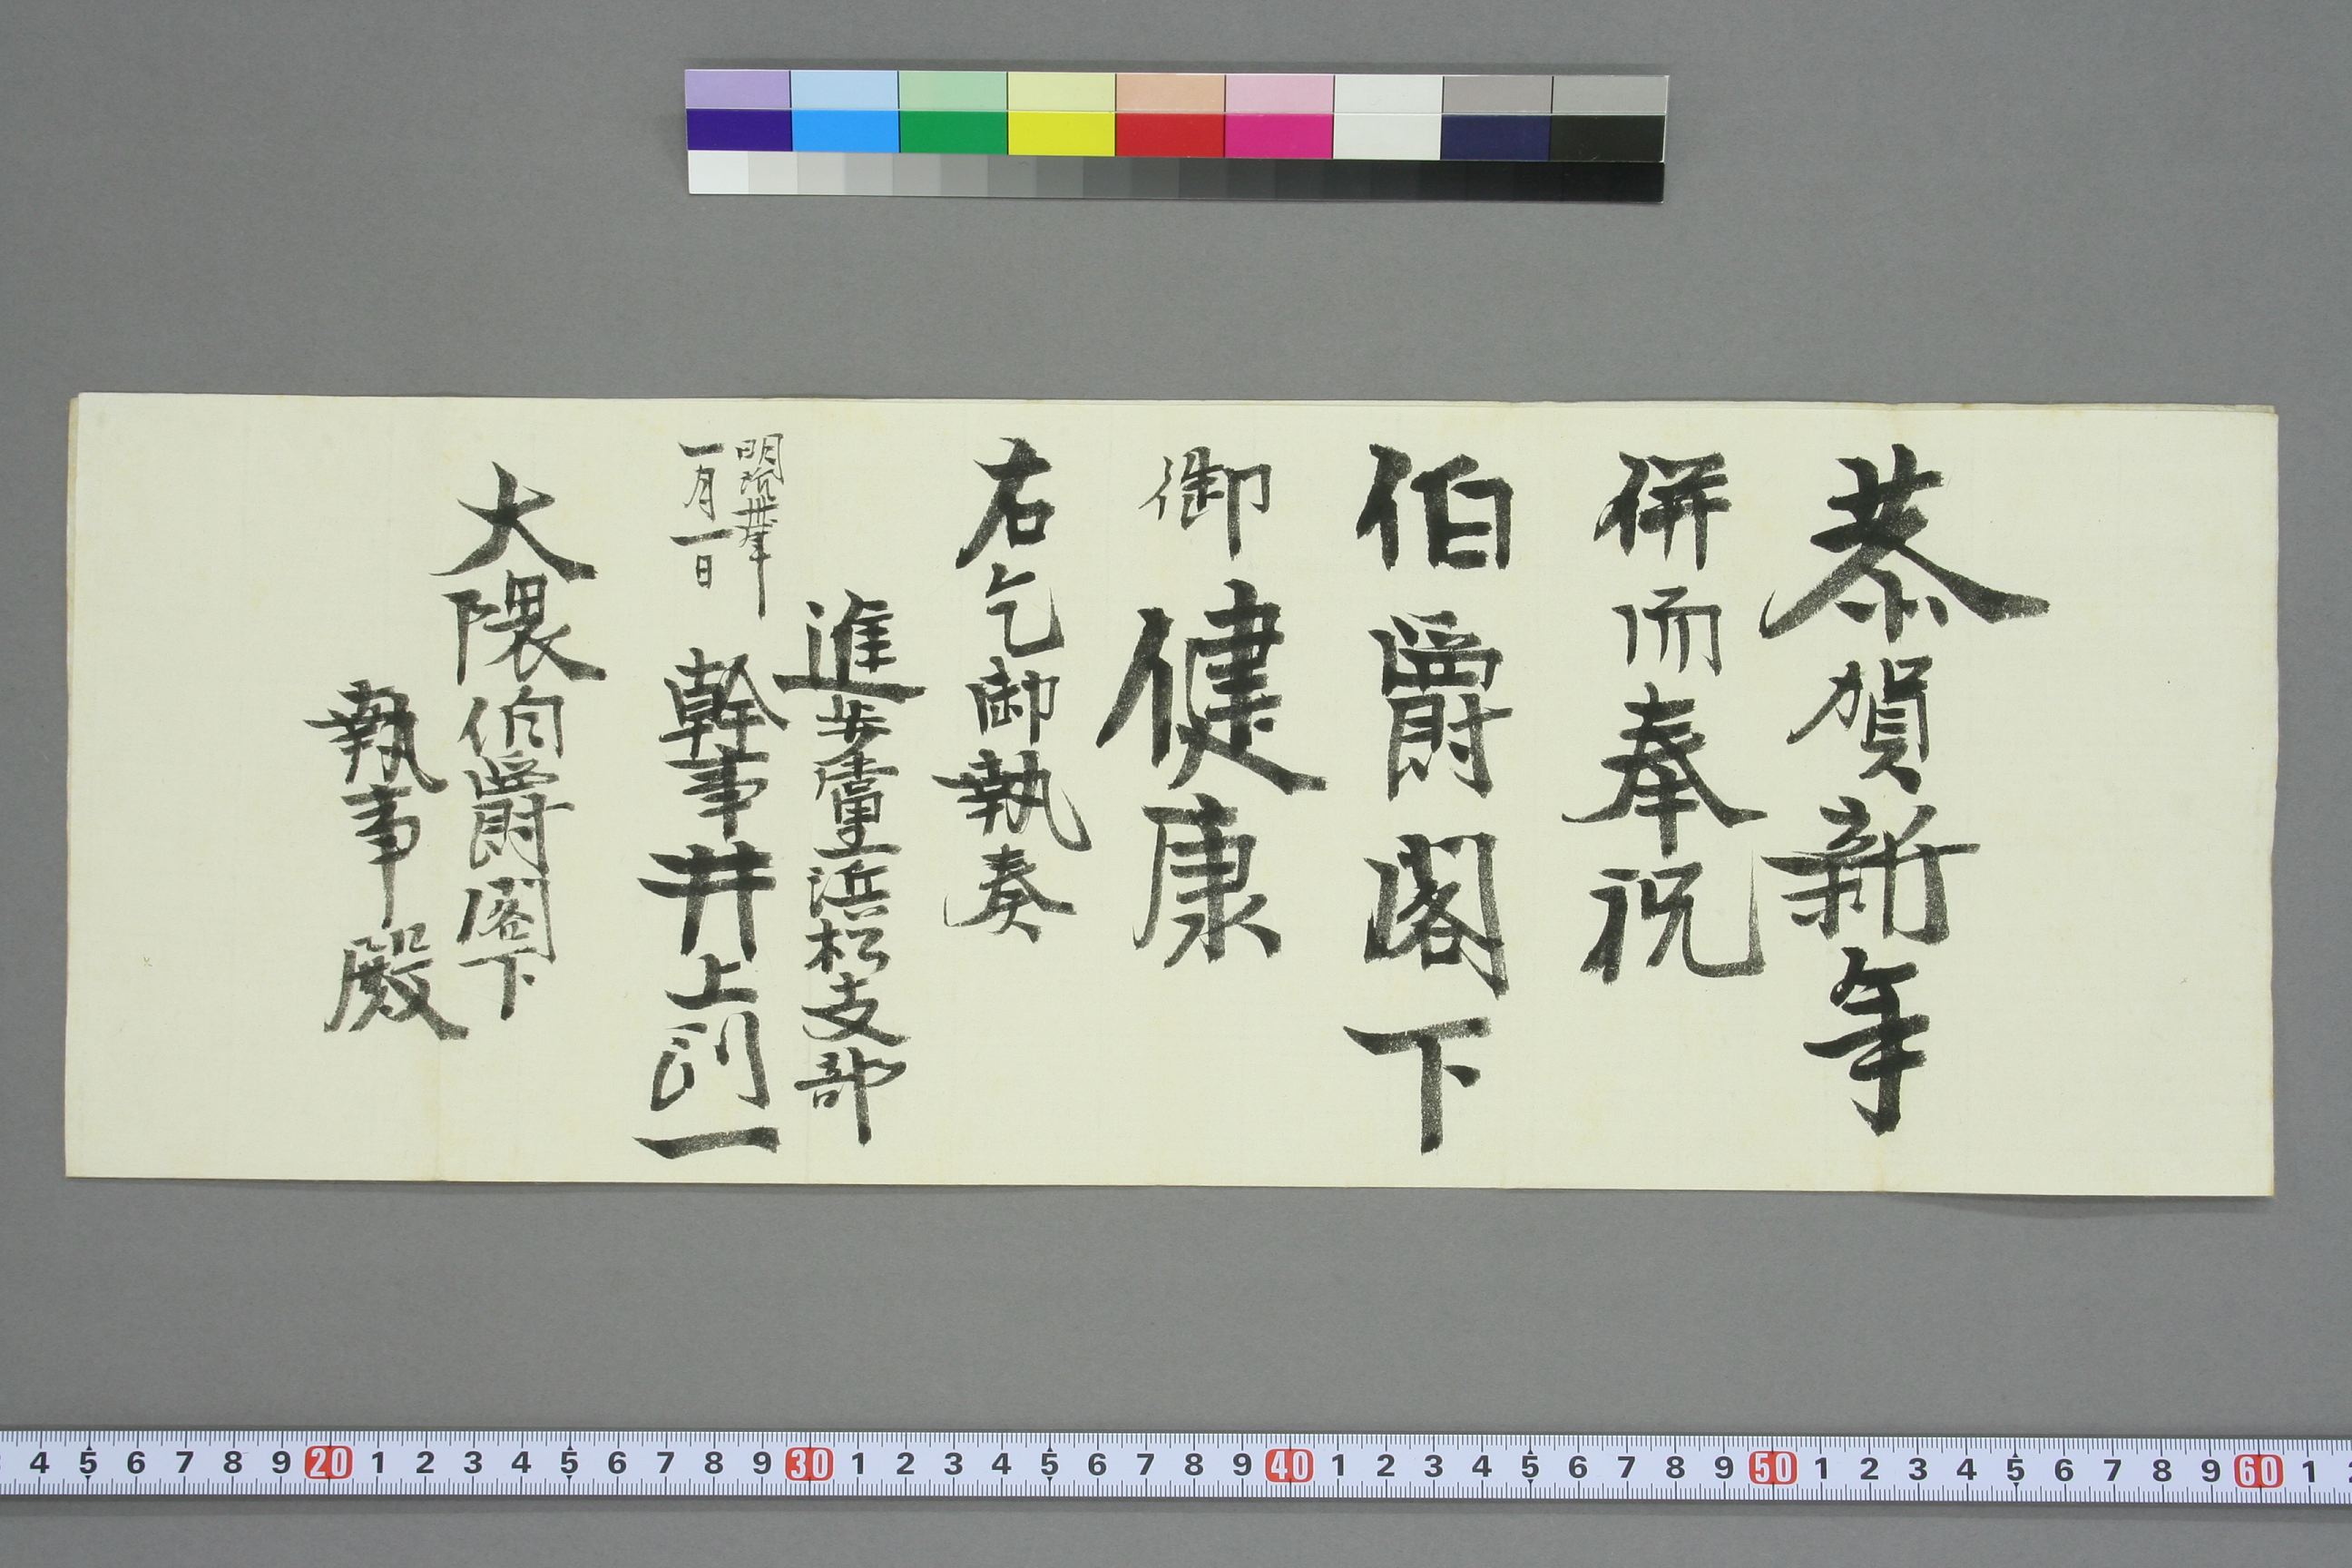 恭賀新年
併而奉祝
伯爵閣下
御健康
右乞御執奏
進歩黨浜松支部
明治卅年
一月一日
幹事井上一
大隈伯爵閣下
執事殿
4 5 6 7 8 9 20 1 2 3 4 5 6 7 8 9 30 1 2 3 4 5 6 7 8 9 40 1 2 3 4 5 6 7 8 9 50 1 2 3 4 5 6 7 8 9 60 1